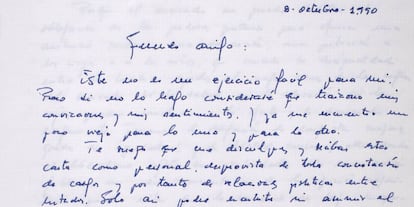 8-octubre-1990
Querido amigo:
Este no es un ejercicio fácil para mi.
Pero si no lo hago consideraré que traiciono mis
convicciones y mis sentimientos. Y ya me encuentro un
poco viejo para lo uno y para lo otro.
Te ruego que me disculpes y recibas esta
carta como personal, desprovista de toda connotación
de cargo, y por tanto de relaciones políticas entre
Estados. Solo así podré escribirte sin asumir el